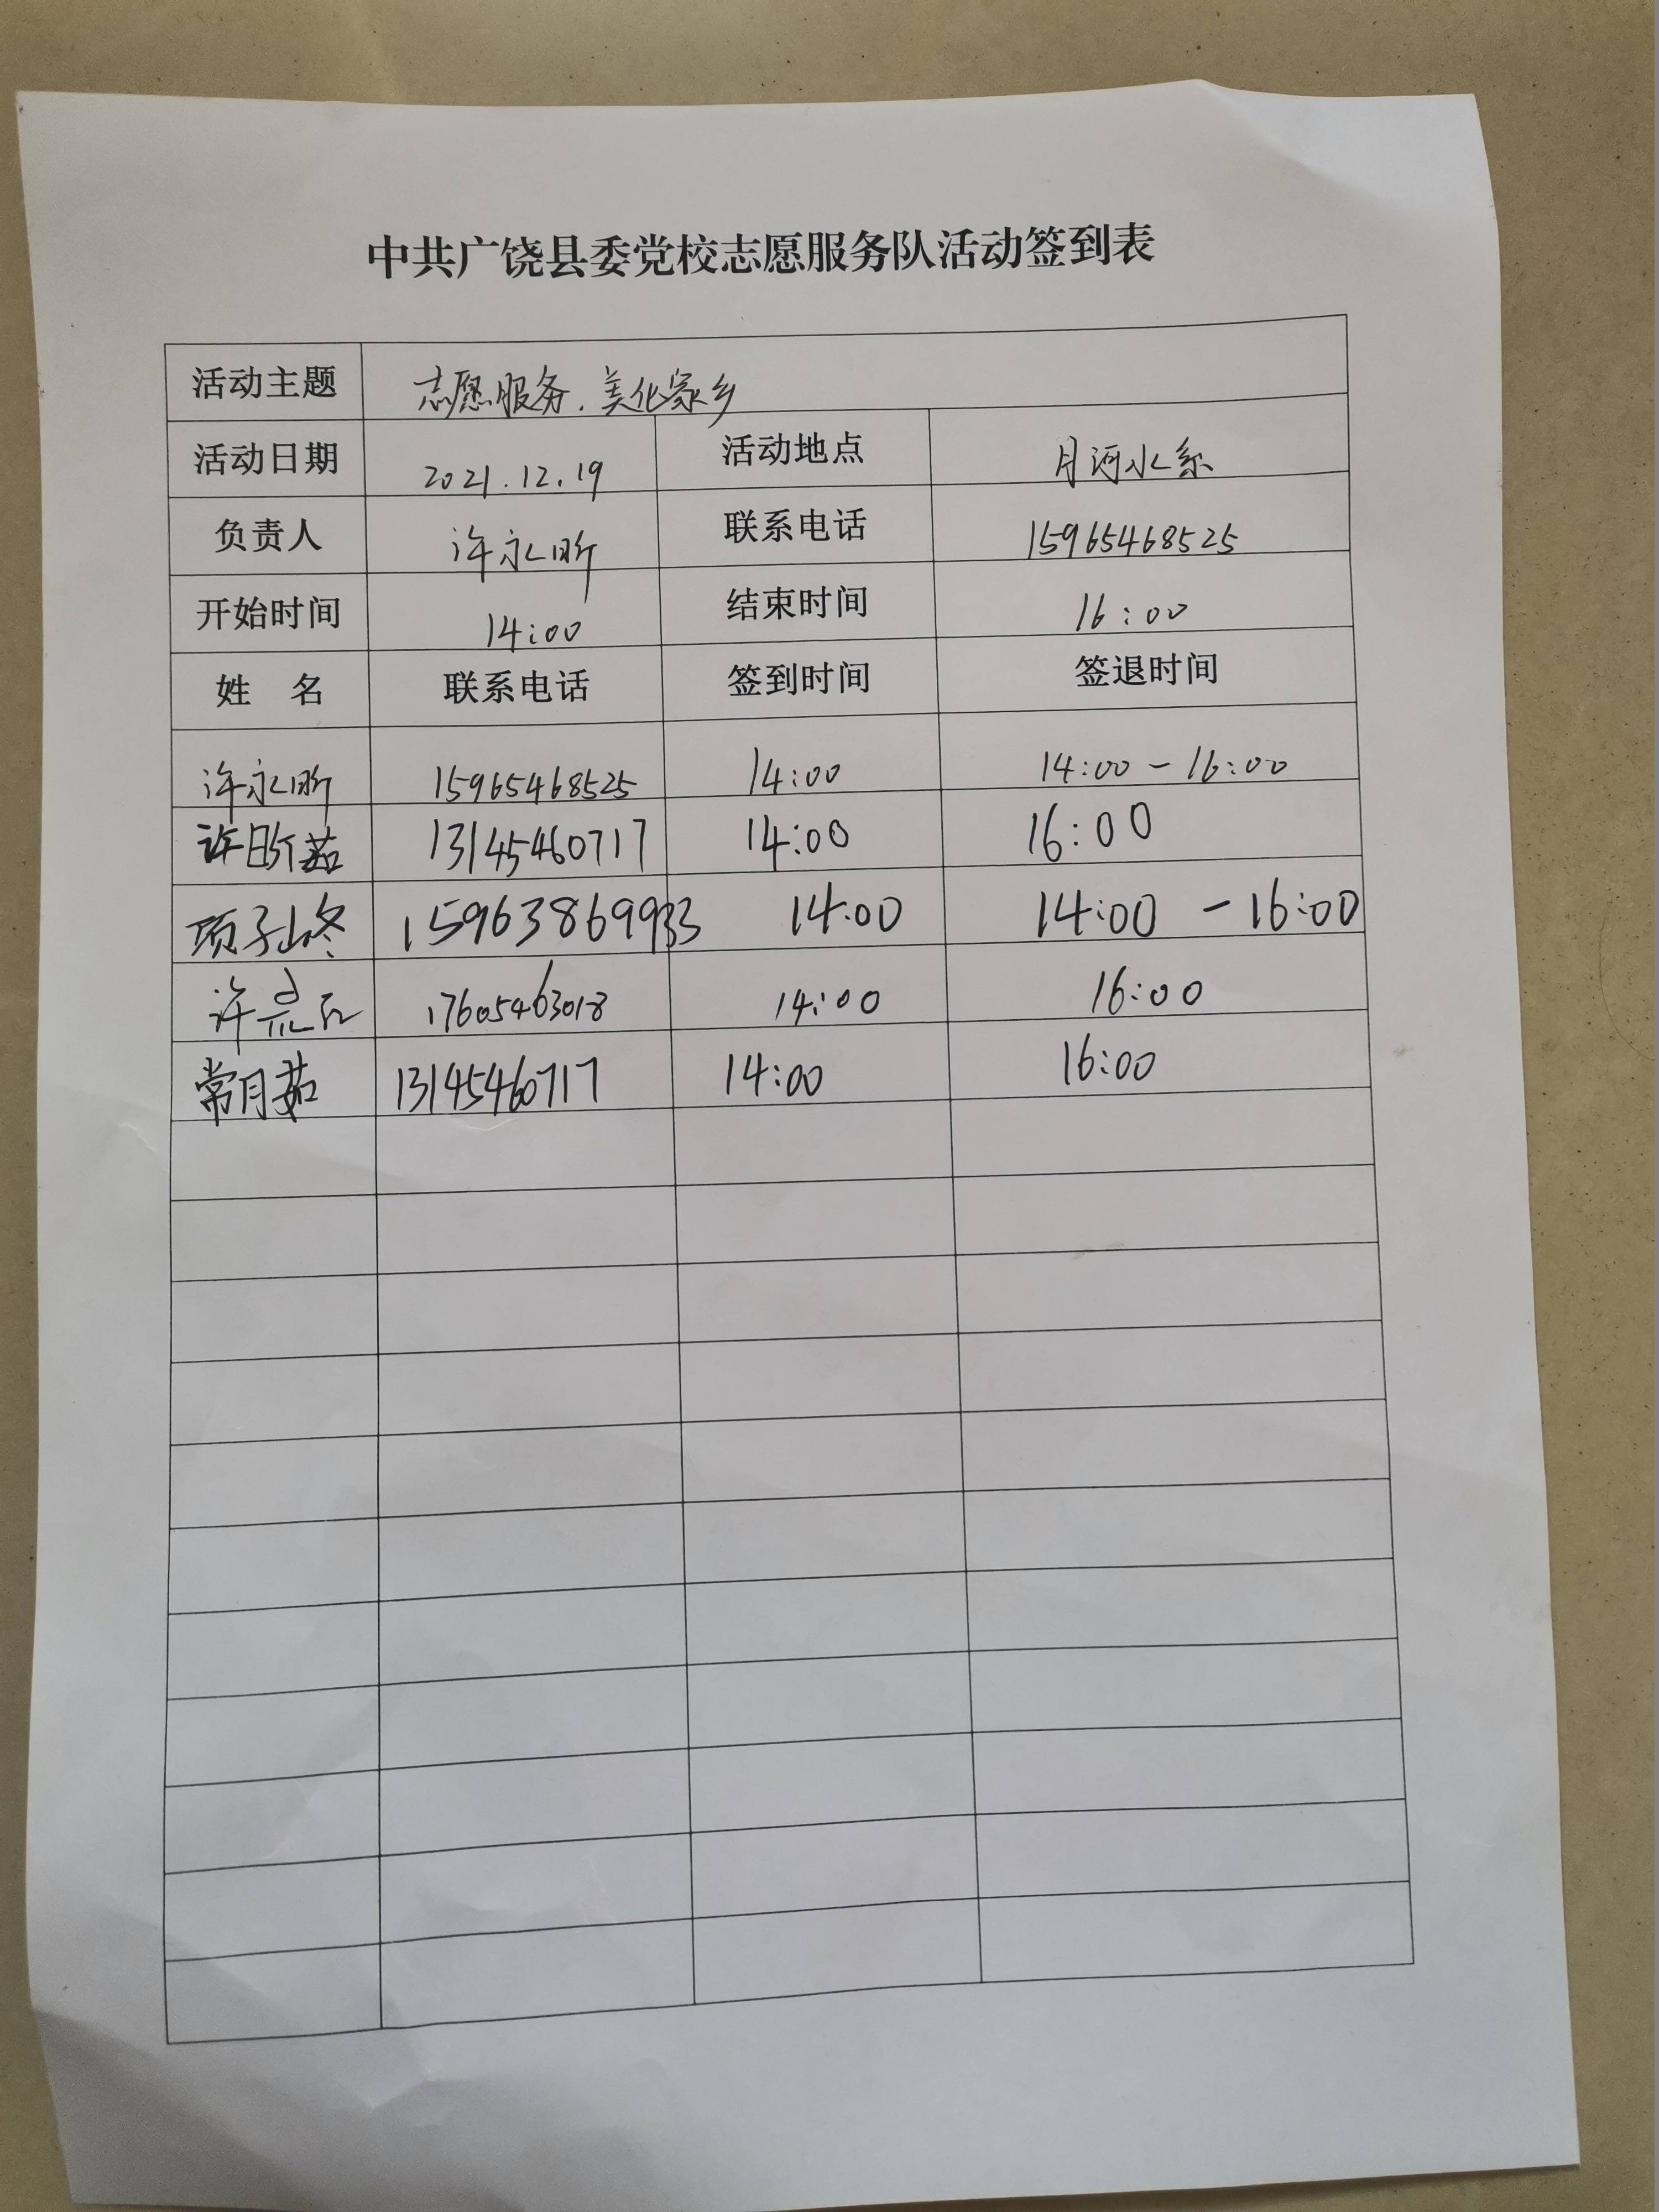 中共广饶县委党校志愿服务队活动签到表
活动主题 志愿服务.美化家乡
活动日期 2021.12.19 活动地点 月河水系
负责人 许永昕 联系电话 15965468525
开始时间 14:00 结束时间 16:00
姓 名 联系电话 签到时间 签退时间
许永昕 15965468525 14:00 14:00-16:00
许昕茹 13145460717 14:00 16:00
项子峂 15963869933 14:00 14:00-16:00
许 17605463018 14:00 16:00
常月茹 13145460717 14:00 16:00